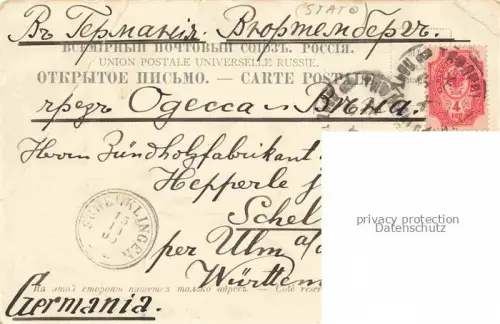 (STATO)
Въ Германія. Вюртембергъ.
ВСЕМІРНЫЙ ПОЧТОВЫЙ СОЮЗЪ. РОССІЯ.
UNION POSTALE UNIVERSELLE RUSSIE.
ОТКРЫТОЕ ПИСЬМО. — CARTE POSTALE
чрезъ Одесса — Вѣна.
4
КОП
Herrn Zündholzfabrikant
Hepperle j
Schel
per Ulm a/d
Württem
SCHELKLINGEN
15
11
На этой сторонѣ пишется только адресъ. — Côté réser
Germania.
privacy protection
Datenschutz